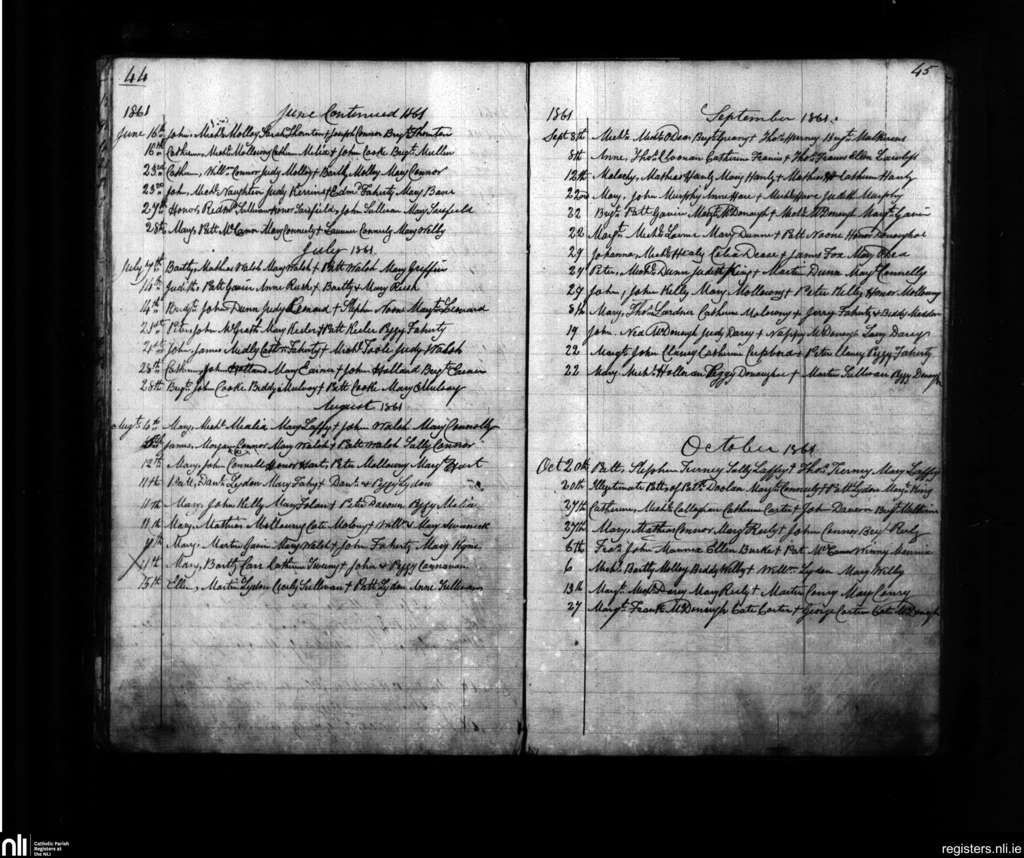 44
1861
June Continued 1861
June 16th John, Michl Molloy Sarah Thornton + Joseph Connor Bregt Thornton
16th Catherine, Michl Mollowny Cathrn Melia + John Cooke Bregt Mullen
23rd Cathrn, Willm Connor Judy Molloy + Bartly Molloy Mary Connor
23rd John, Michl Naughten Judy Kerrins + Edmd Faherty Mary Bane
27th Honor, Redmd Sullivan Honor Fairfield, John Sullivan Mary Fairfield
28th Mary, Patt McCann Mary Connerly + Laurence Connerly Mary Welby
July 1861
July 7th Bartly, Mathias Walsh Mary Walsh + Patt Walsh Mary Griffin
14th Judith, Patt Gavin Anne Rush + Bartly + Mary Rush
14th Bridgt, John Dunn Judy Lenard + Steph Noone Margt Leonard
21st Peter, John McGrath Mary Keeler + Patt Keeler Peggy Faherty
21st John, James Faherty + Michl Toole Judy Walsh
28th Cathrn, John Holland Mary + John Holland Bregt
28th Bregt John Cooke Biddy Mulroy + Patt Cooke Mary Mulroy
August 1861
Augt 10th Mary, Michl Mealia Mary Laffy + John Walsh Mary Connolly
James, Morgan Connor Mary Walsh + Patt Walsh Sally Connor
12th Mary, John Connell Honor Hart, Peter Mollowny Margt Hart
11th Patt, Danl Lydon Mary Fahy + Danl + Peggy Lydon
11th Mary, John Kelly Mary Folan + Peter Peggy Melia
11th Mary, Mathias Mollowny Cate Molony + Willm + Mary
9th Mary, Martin Gavin Mary Walsh + John Faherty Mary Kyne
11th Mary, Bartly Carr Cathrine + John + Peggy Cannavan
15th Ellen, Martin Lydon Cecily Sullivan + Patt Lydon Anne Sullivan
45
1861
September 1861.
Sept 8th Michl, Michl ODea Bregt + Thos Bregt
8th Anne, Thos Cloonan Catherine Francis + Thos Francis Ellen
12th Malachy, Mathias Hanly Mary Hanly + Mathias + Cathrn Hanly
22nd Mary, John Murphy Anne Hare + Michl Hare Judith Murphy
22 Bregt Patt Gavin Margt McDonagh + Michl McDonagh Margt Gavin
22 Margt Michl Mary Dunne + Patt Noone Honor
29 Johanna, Michl Healy Celia + James Fox Mary
29 Peter, Michl Dunn Judith King + Martin Dunn Mary Connelly
29 John, John Kelly Mary Mollowny + Peter Kelly Honor Mollowny
8th Mary, Thos Lardner Cathrine Molowny + Jerry Faherty + Biddy Madden
19 John, Ned McDonagh Judy Darcy + McDonagh Darcy
22 Margt John Clancy Catherine + Peter Clancy Peggy Faherty
22 Mary, Michl Holloran Peggy Donaghue + Martin Sullivan Peggy
October 1861
Oct 20th Patt, Stephen Tierney Sally Laffy + Thos Tierney Mary Laffy
20th Illegitimate Patt, of Patt Doolan Margt Connerly + Patt Lydon Margt King
27th Catherine, Michl Callaghan Cathrine Carter + John Bregt
27th Mary, Mathias Connor Margt Reely + John Connor Bregt Reely
6th John Ellen Burke + Pat McCann Winny
6 Michl Bartly Molloy Biddy Welby + Willm Lydon Mary Welby
13th Margt Michl Darcy Mary Reely + Martin Conry Mary Conry
27 Margt Frank McDonagh Cate Carter + George Carter Cate McDonagh
nli Catholic Parish Registers at the NLI
registers.nli.ie